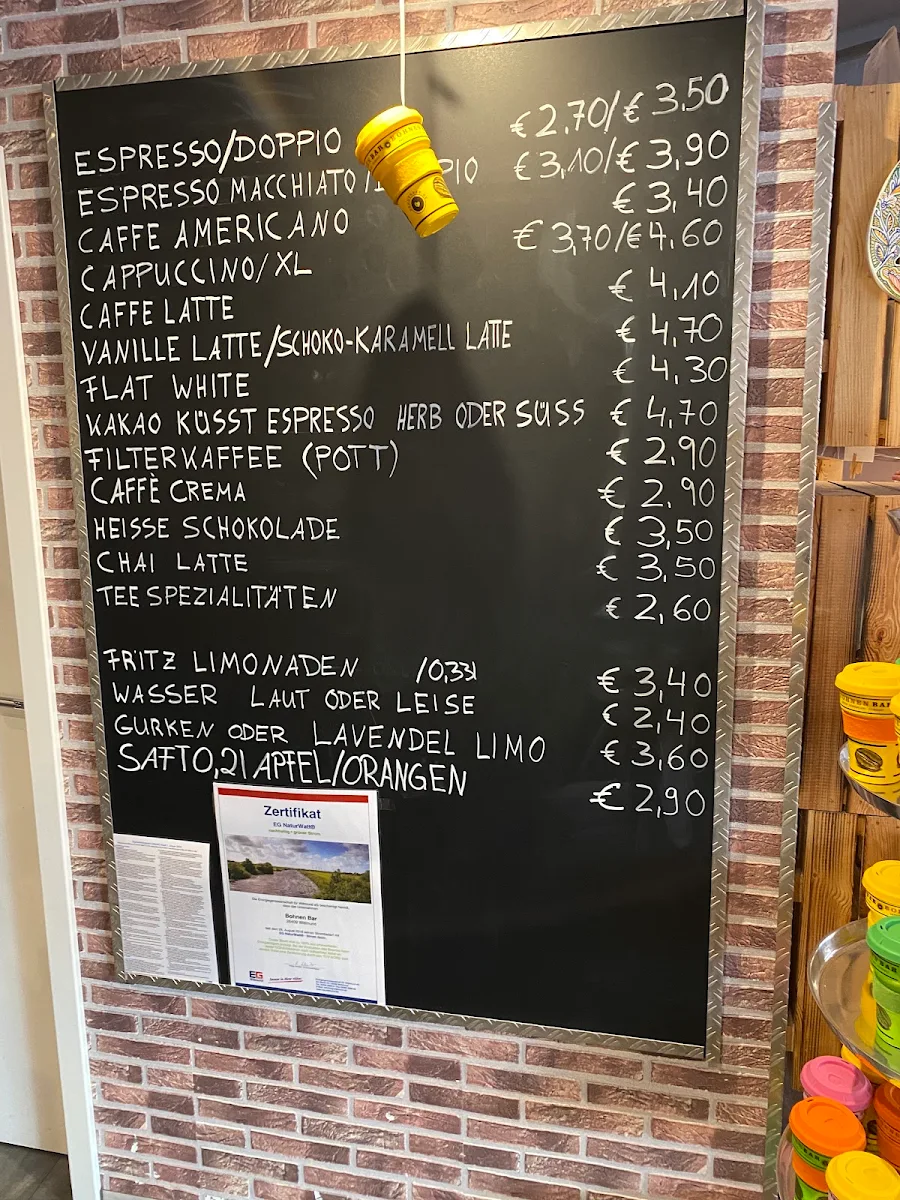 ESPRESSO/DOPPIO € 2.70/€ 3.50
ESPRESSO MACCHIATO/ PIO € 3,10/€ 3,90
CAFFE AMERICANO € 3,40
CAPPUCCINO/XL € 3,70/€ 4.60
CAFFE LATTE € 4,10
VANILLE LATTE/SCHOKO-KARAMELL LATTE € 4,70
FLAT WHITE € 4,30
KAKAO KÜSST ESPRESSO HERB ODER SÜSS € 4,70
FILTERKAFFEE (POTT) € 2,90
CAFFÈ CREMA € 2.90
HEISSE SCHOKOLADE € 3,50
CHAI LATTE € 3,50
TEE SPEZIALITÄTEN € 2,60
FRITZ LIMONADEN /0,33l € 3,40
WASSER LAUT ODER LEISE € 2,40
GURKEN ODER LAVENDEL LIMO € 3,60
SAFT 0,2l APFEL/ORANGEN € 2,90
Zertifikat
EG NaturWatt®
nachhaltig - grüner Strom
Bohnen Bar
EG
BAR
BOHNEN BAR
BAR